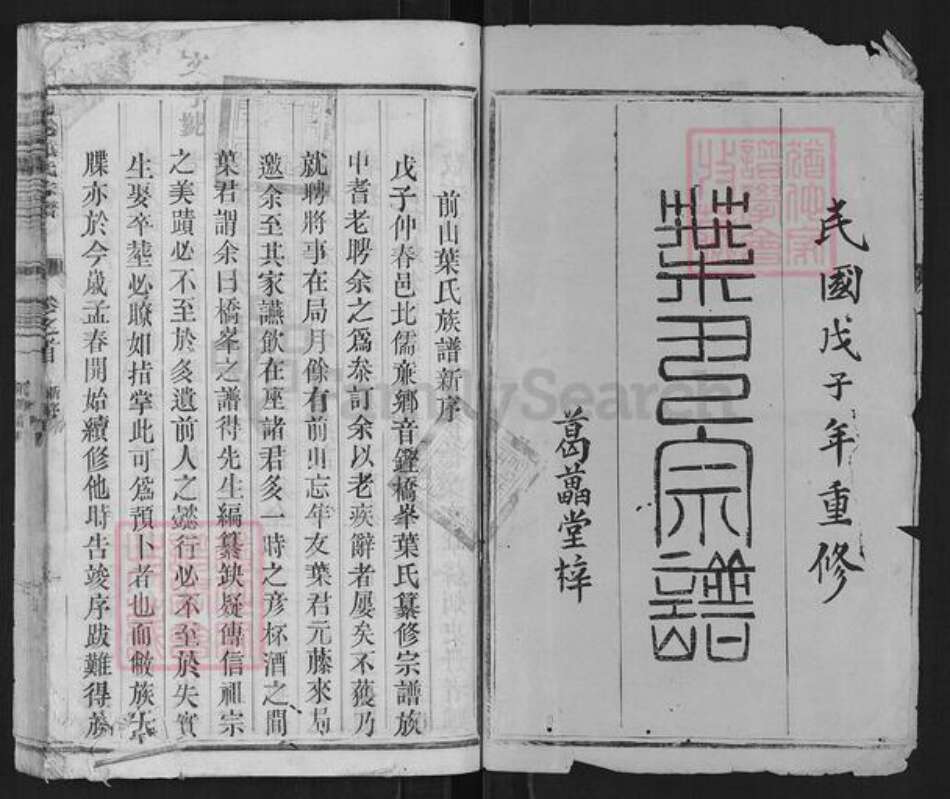 民國戊子年重修
葉氏宗譜
葛藟堂梓
前山葉氏族譜新序
戊子仲春邑北儒族鄉音鏗橋峯葉氏纂修宗譜族
中耆老聘余之爲叅訂余以老疾辭者屢矣不獲乃
就聘將事在局月餘有前山忘年友葉君元藤來局
邀余至其家讌飲在座諸君多一時之彦杯酒之間
葉君謂余曰橋峯之譜得先生編纂缺疑傳信祖宗
之美蹟必不至於多遺前人之懿行必不至於失實
生娶卒塟必瞭如指掌此可爲預卜者也而敝族宗
牒亦於今歲孟春開始續修他時告竣序跋難得
FamilySearch